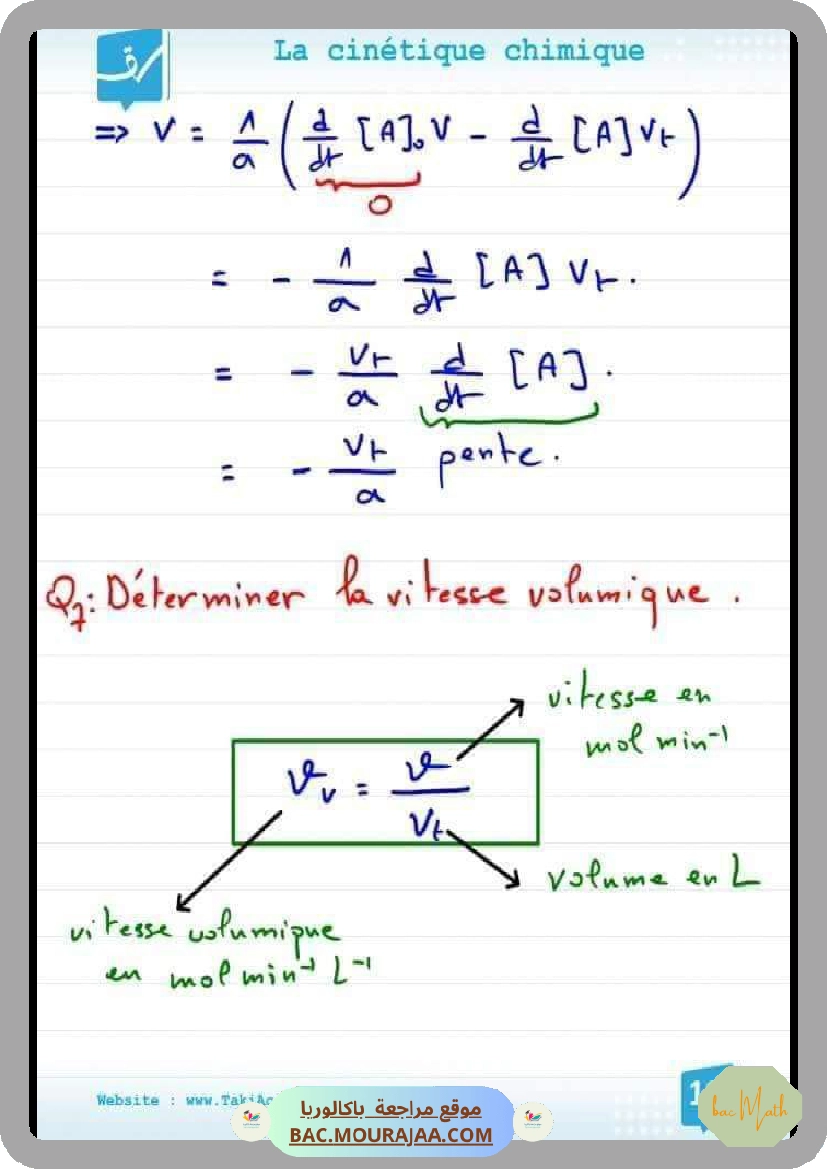 La cinétique chimique
=> V = 1/a ( d/dt [A]₀ V - d/dt [A] Vt )
0
= - 1/a d/dt [A] Vt.
= - Vt/a d/dt [A].
= - Vt/a pente.
Q7: Déterminer la vitesse volumique.
vitesse en
mol min⁻¹
𝓋v = 𝓋/Vt
volume en L
vitesse volumique
en mol min⁻¹ L⁻¹
Website : www.
موقع مراجعة باكالوريا
BAC.MOURAJAA.COM
bac Math